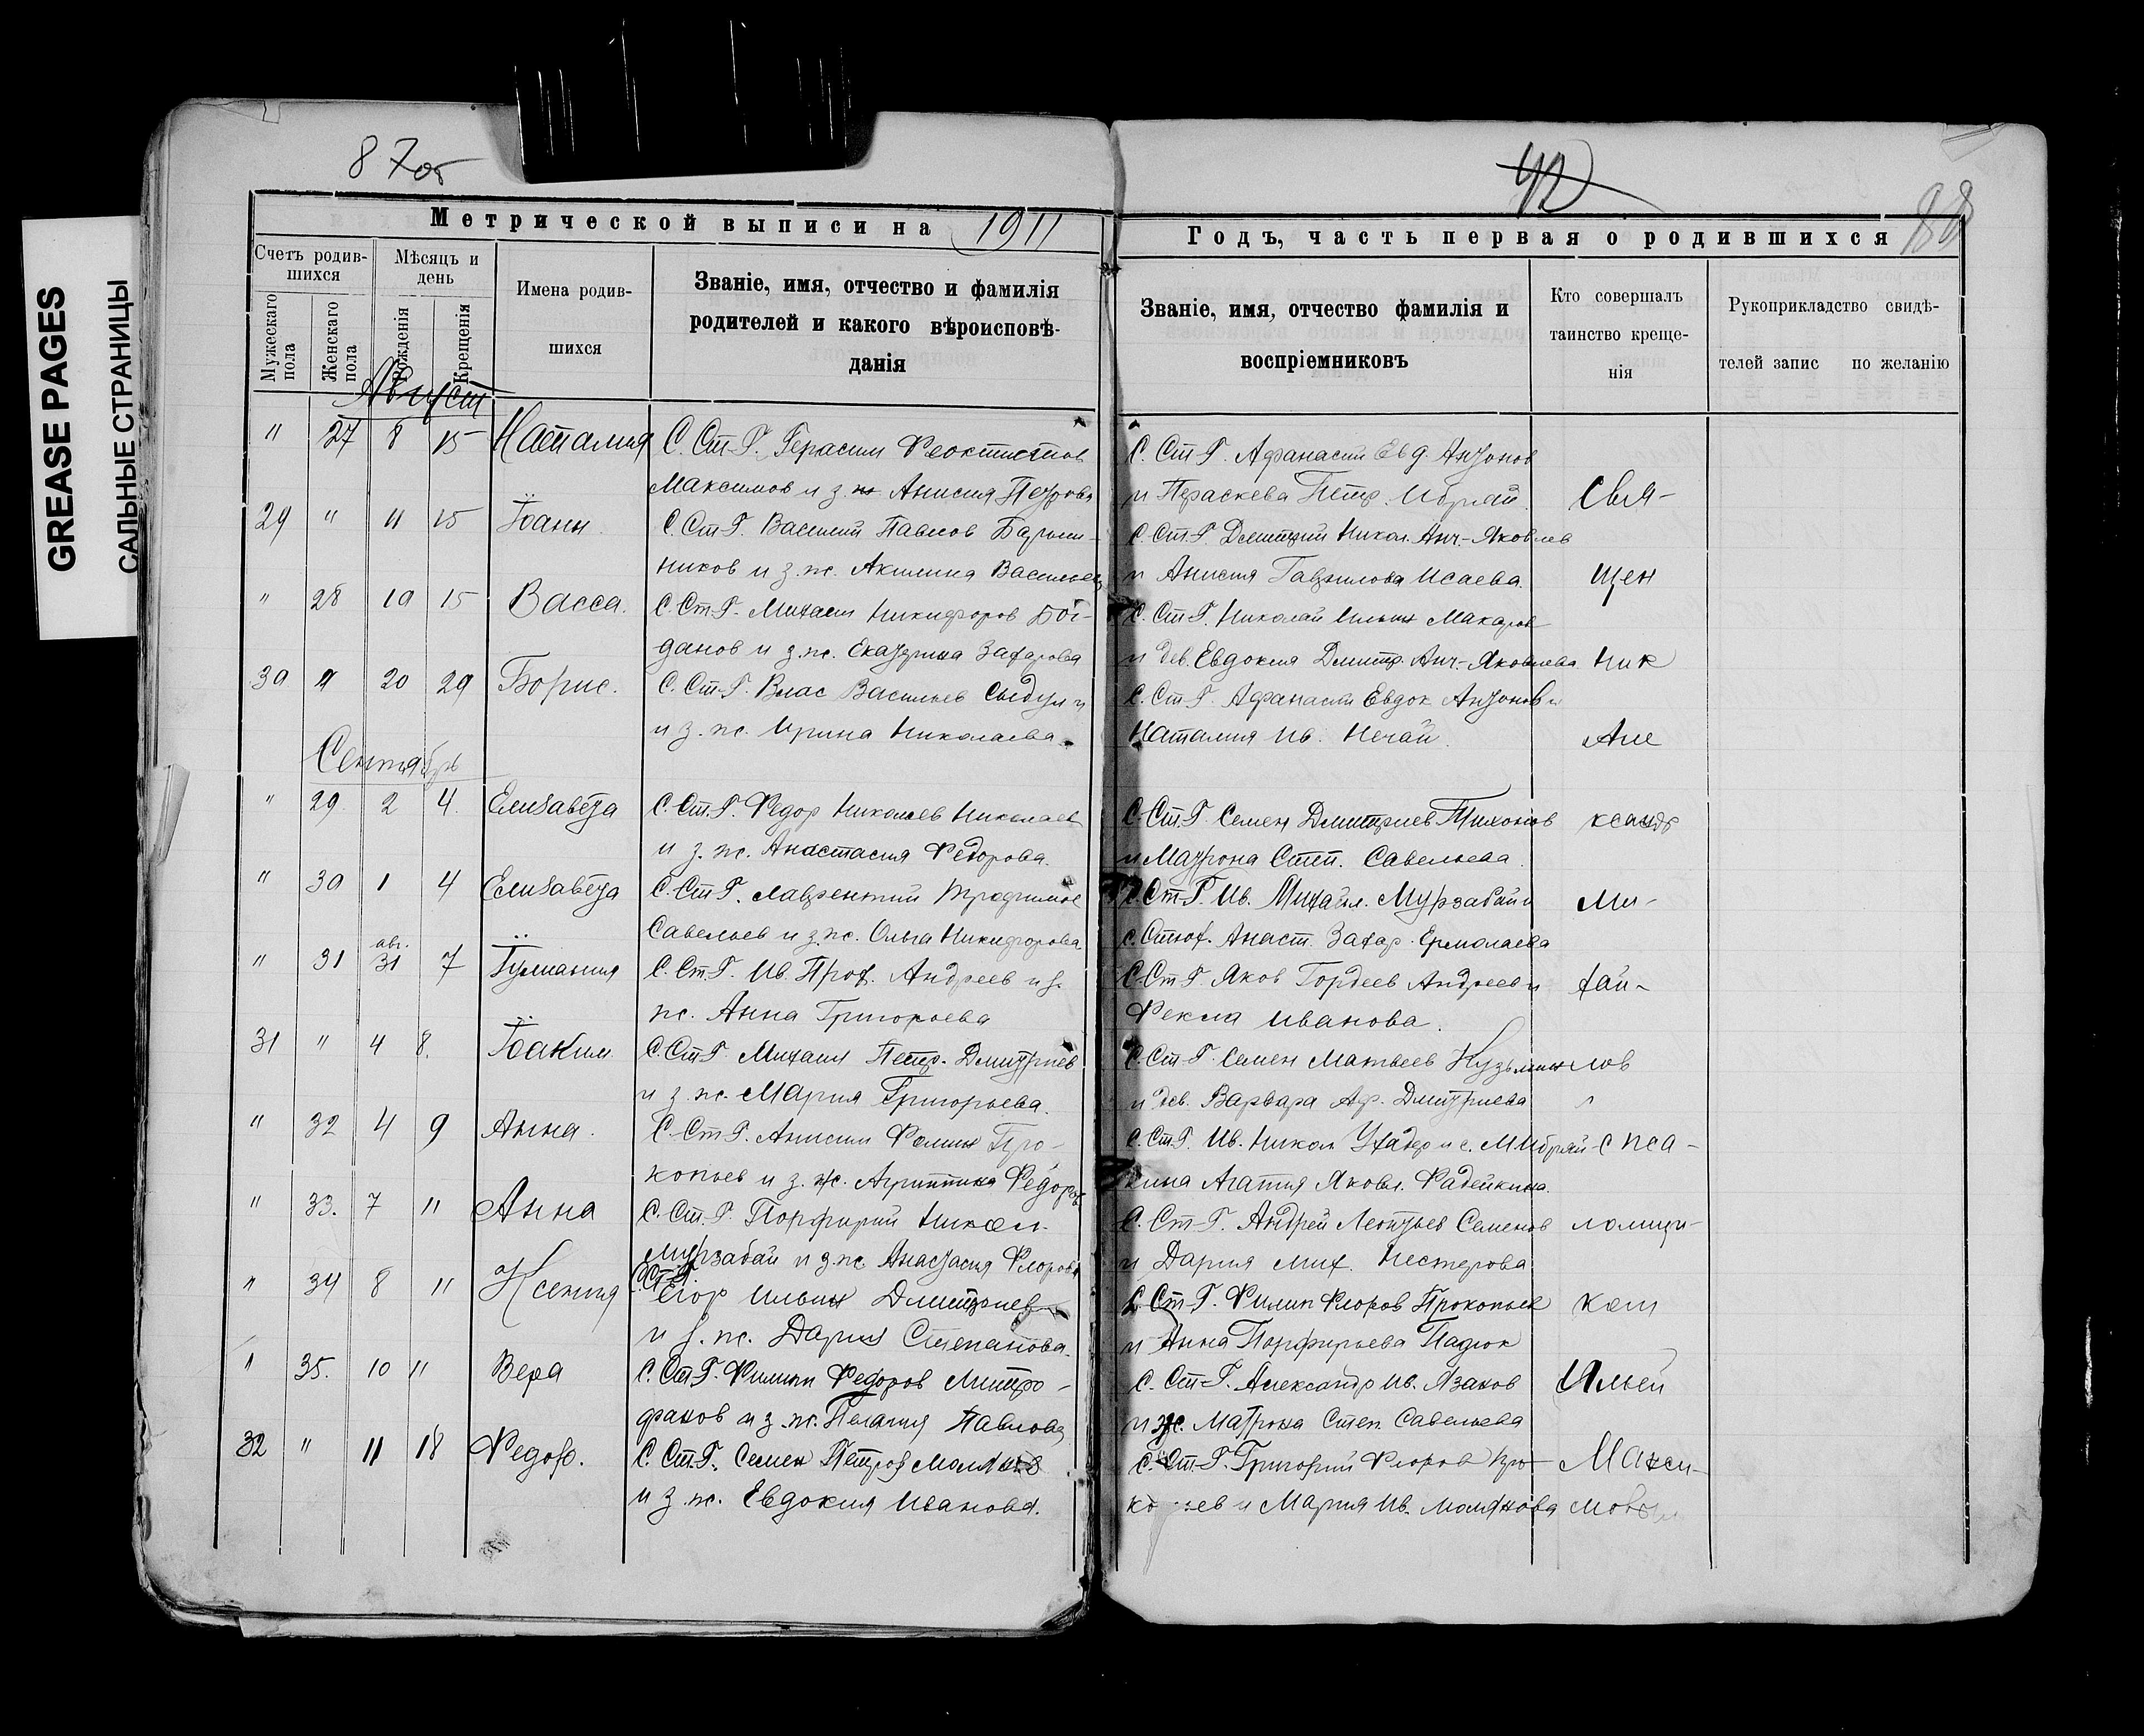 87об
42
88
GREASE PAGES
САЛЬНЫЕ СТРАНИЦЫ
Метрической выписи на 1911
Счетъ родив-
шихся
Мѣсяцъ и
день
Мужескаго
пола
Женскаго
пола
Рожденія
Крещенія
Имена родив-
шихся
Званіе, имя, отчество и фамилія
родителей и какого вѣроисповѣ-
данія
Август
" 27 8 15 Наталия С. Ст-Г. Герасим Феоктистов
Максимов и з. ж. Анисия Петрова
29 " 11 15 Іоанн. С. Ст.Г. Василий Павлов
ников и з. ж. Акилина
" 28 10 15 Васса. С. Ст-Г. Михаил Никифоров Бог-
данов и з. ж. Екатерина Захарова
30 " 20 29 Борис. С. Ст.Г. Влас Васильев
и з. ж. Ирина Николаева
Сентябрь
" 29 2 4. Елизавета С. Ст.Г. Федор Николаев Николаев
и з. ж. Анастасия Федорова.
" 30 1 4 Елизавета С. Ст.Г. Лаврентий Трофимов
Савельев и з. ж. Ольга Никифорова
" 31 авг. 31 7 Іулиания С. Ст.Г. Ив. Проф. Андреев и з.
ж. Анна Григорьева
31 " 4 8. Іоаким С. Ст.Г. Михаил Петр. Дмитриев
и з. ж. Мария Григорьева.
" 32 4 9 Анна. С. Ст.Г. Анисим Фомин Про-
копьев и з. ж. Агриппина Федоров
" 33. 7 11 Анна С. Ст.Г. Порфирий Никол.
Мурзабай и з. ж. Анастасия Флорова
" 34 8 11 Ксения С. Ст.Г. Егор Ильин Дмитриев
и з. ж. Дария Степанова.
" 35. 10 11 Вера С. Ст.Г. Филипп Федоров Митро-
фанов и з. ж. Пелагия Павлова
32 " 11 18 Федор. С. Ст.Г. Семен Петров
и з. ж. Евдокия Иванова.
Годъ, часть первая о родившихся
Званіе, имя, отчество фамилія и
воспріемниковъ
Кто совершалъ
таинство креще-
нія
Рукоприкладство свидѣ-
телей запис по желанію
С. Ст Г. Афанасий Евд. Антонов
и Параскева Петр. Ибряй. Свя-
С. Ст.Г. Дмитрий Никол. Анч.-Яковлев
и Анисия Гаврилова Исаева. щен
С. Ст Г. Николай Ильин Макаров
и дев. Евдокия Дмитр. Анч.-Яковлева ник
С. Ст Г. Афанасий Евдок Антонов и
Наталия Ив. Нечай. Але
С. Ст.Г. Семен Дмитриев Тихонов ксандр
и Матрона Степ. Савельева.
С. Ст.Г. Ив. Михайл. Мурзабай и Ми-
с. Стюх. Анаст. Захар. Ермолаева
С. Ст Г. Яков Гордеев Андреев и хай-
Фекла Иванова.
С. Ст Г. Семен Матвеев Кузьмин лов
и дев. Варвара Аф. Дмитриева
С. Ст.Г. Ив. Никол и с. М Ибряй- с пса-
кина Агапия Яковл. Фадейкина.
С. Ст-Г. Андрей Леонтьев Семенов ломщи-
и Дария Мих. Нестерова
С. Ст-Г. Филип Флоров Прокопьев ком
и Анна Порфирьева Падюк
С. Ст-Г. Александр Ив. Язаков Ильей
и ж. Матрона Степ. Савельева
С. Ст-Г. Григорий Флоров Про- Макси-
копьев и Мария Ив. мовым